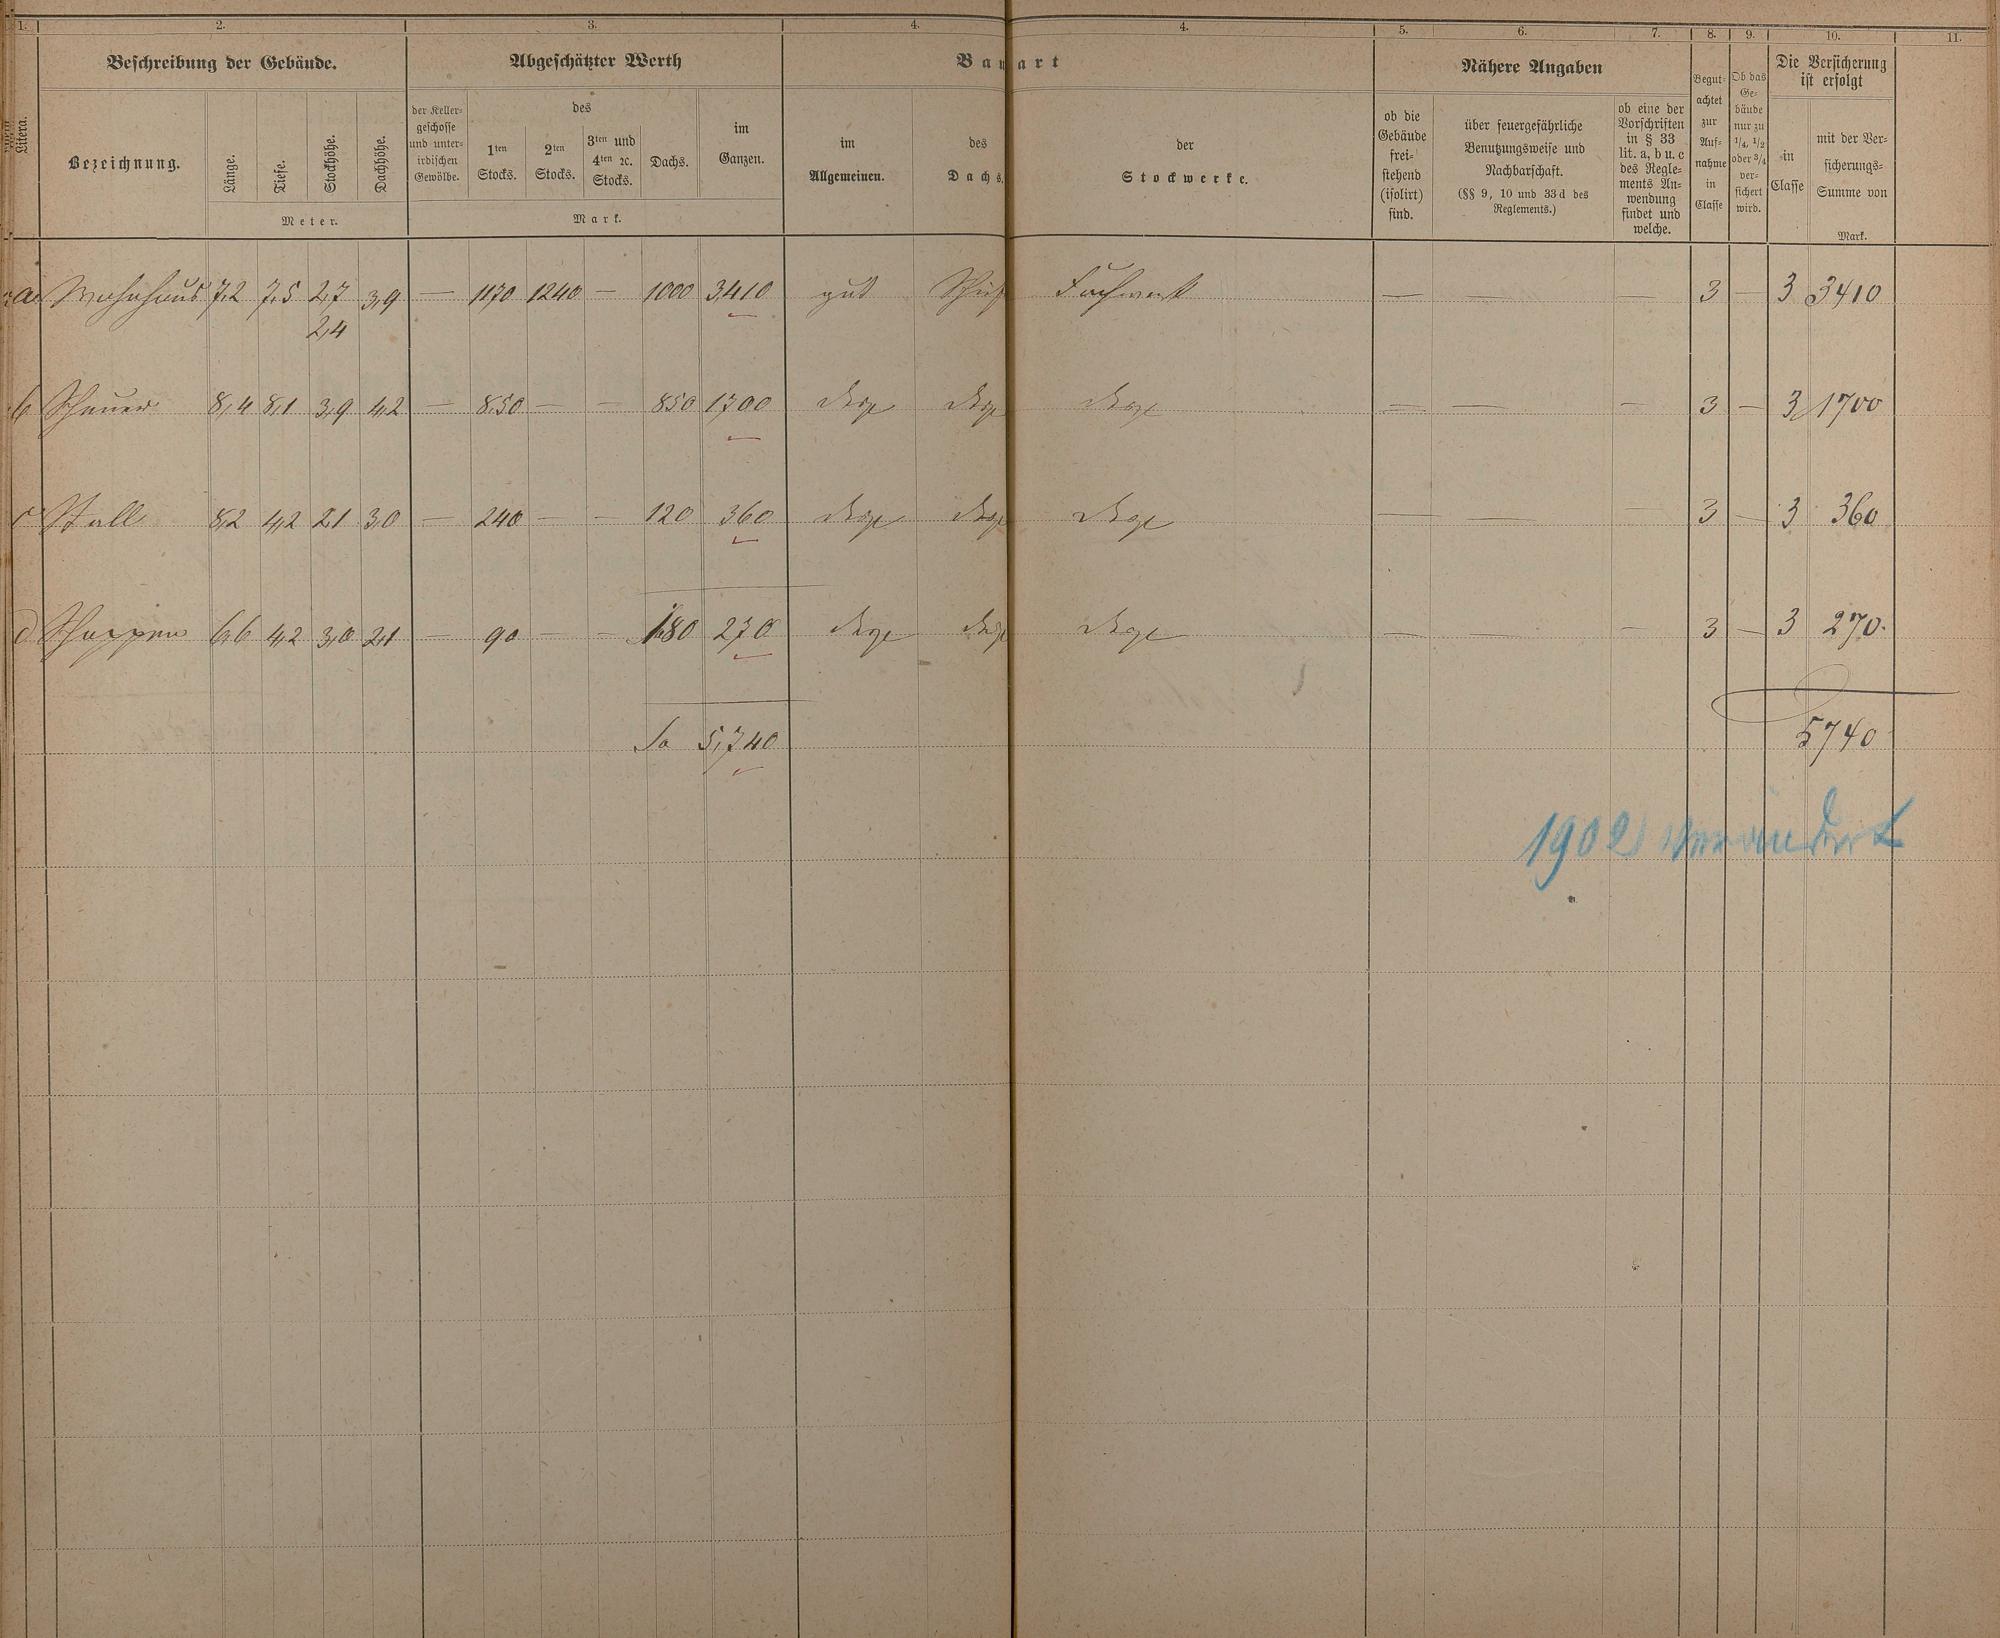 1. 2. 3. 4. 4. 5. 6. 7. 8. 9. 10. 11.
Litera.
Beschreibung der Gebäude.
Bezeichnung.
Länge.
Tiefe.
Stockhöhe.
Dachhöhe.
Meter.
Abgeschätzter Werth
der Keller-
geschosse
und unter-
irdischen
Gewölbe.
des
1ten
Stocks.
2ten
Stocks.
3ten und
4ten ꝛc.
Stocks.
Dachs.
im
Ganzen.
Mark.
Bauart
im
Allgemeinen.
des
Dachs.
der
Stockwerke.
Nähere Angaben
ob die
Gebäude
frei-
stehend
(isolirt)
sind.
über feuergefährliche
Benutzungsweise und
Nachbarschaft.
(§§ 9, 10 und 33d des
Reglements.)
ob eine der
Vorschriften
in § 33
lit. a, b u. c
des Regle-
ments An-
wendung
findet und
welche.
Begut-
achtet
zur
Auf-
nahme
in
Classe
Ob das
Ge-
bäude
nur zu
1/4, 1/2
oder 3/4
ver-
sichert
wird.
Die Versicherung
ist erfolgt
in
Classe
mit der Ver-
sicherungs-
Summe von
Mark.
a Wohnhaus 7,2 7,5 2,7 3,9 — 1170 1240 — 1000 3,410 gut Fachwerk — — — 3 — 3 3410
2,4
b Scheuer 8,4 8,1 3,9 4,2 — 850 — — 850 1,700 — — — 3 — 3 1700
c Stall 8,2 4,2 2,1 3,0 — 240 — — 120 360 — — — 3 — 3 360
d Schoppen 6,6 4,2 3,0 2,1 — 90 — — 180 270 — — — 3 — 3 270.
Sa 5,740 5740
1902 verändert